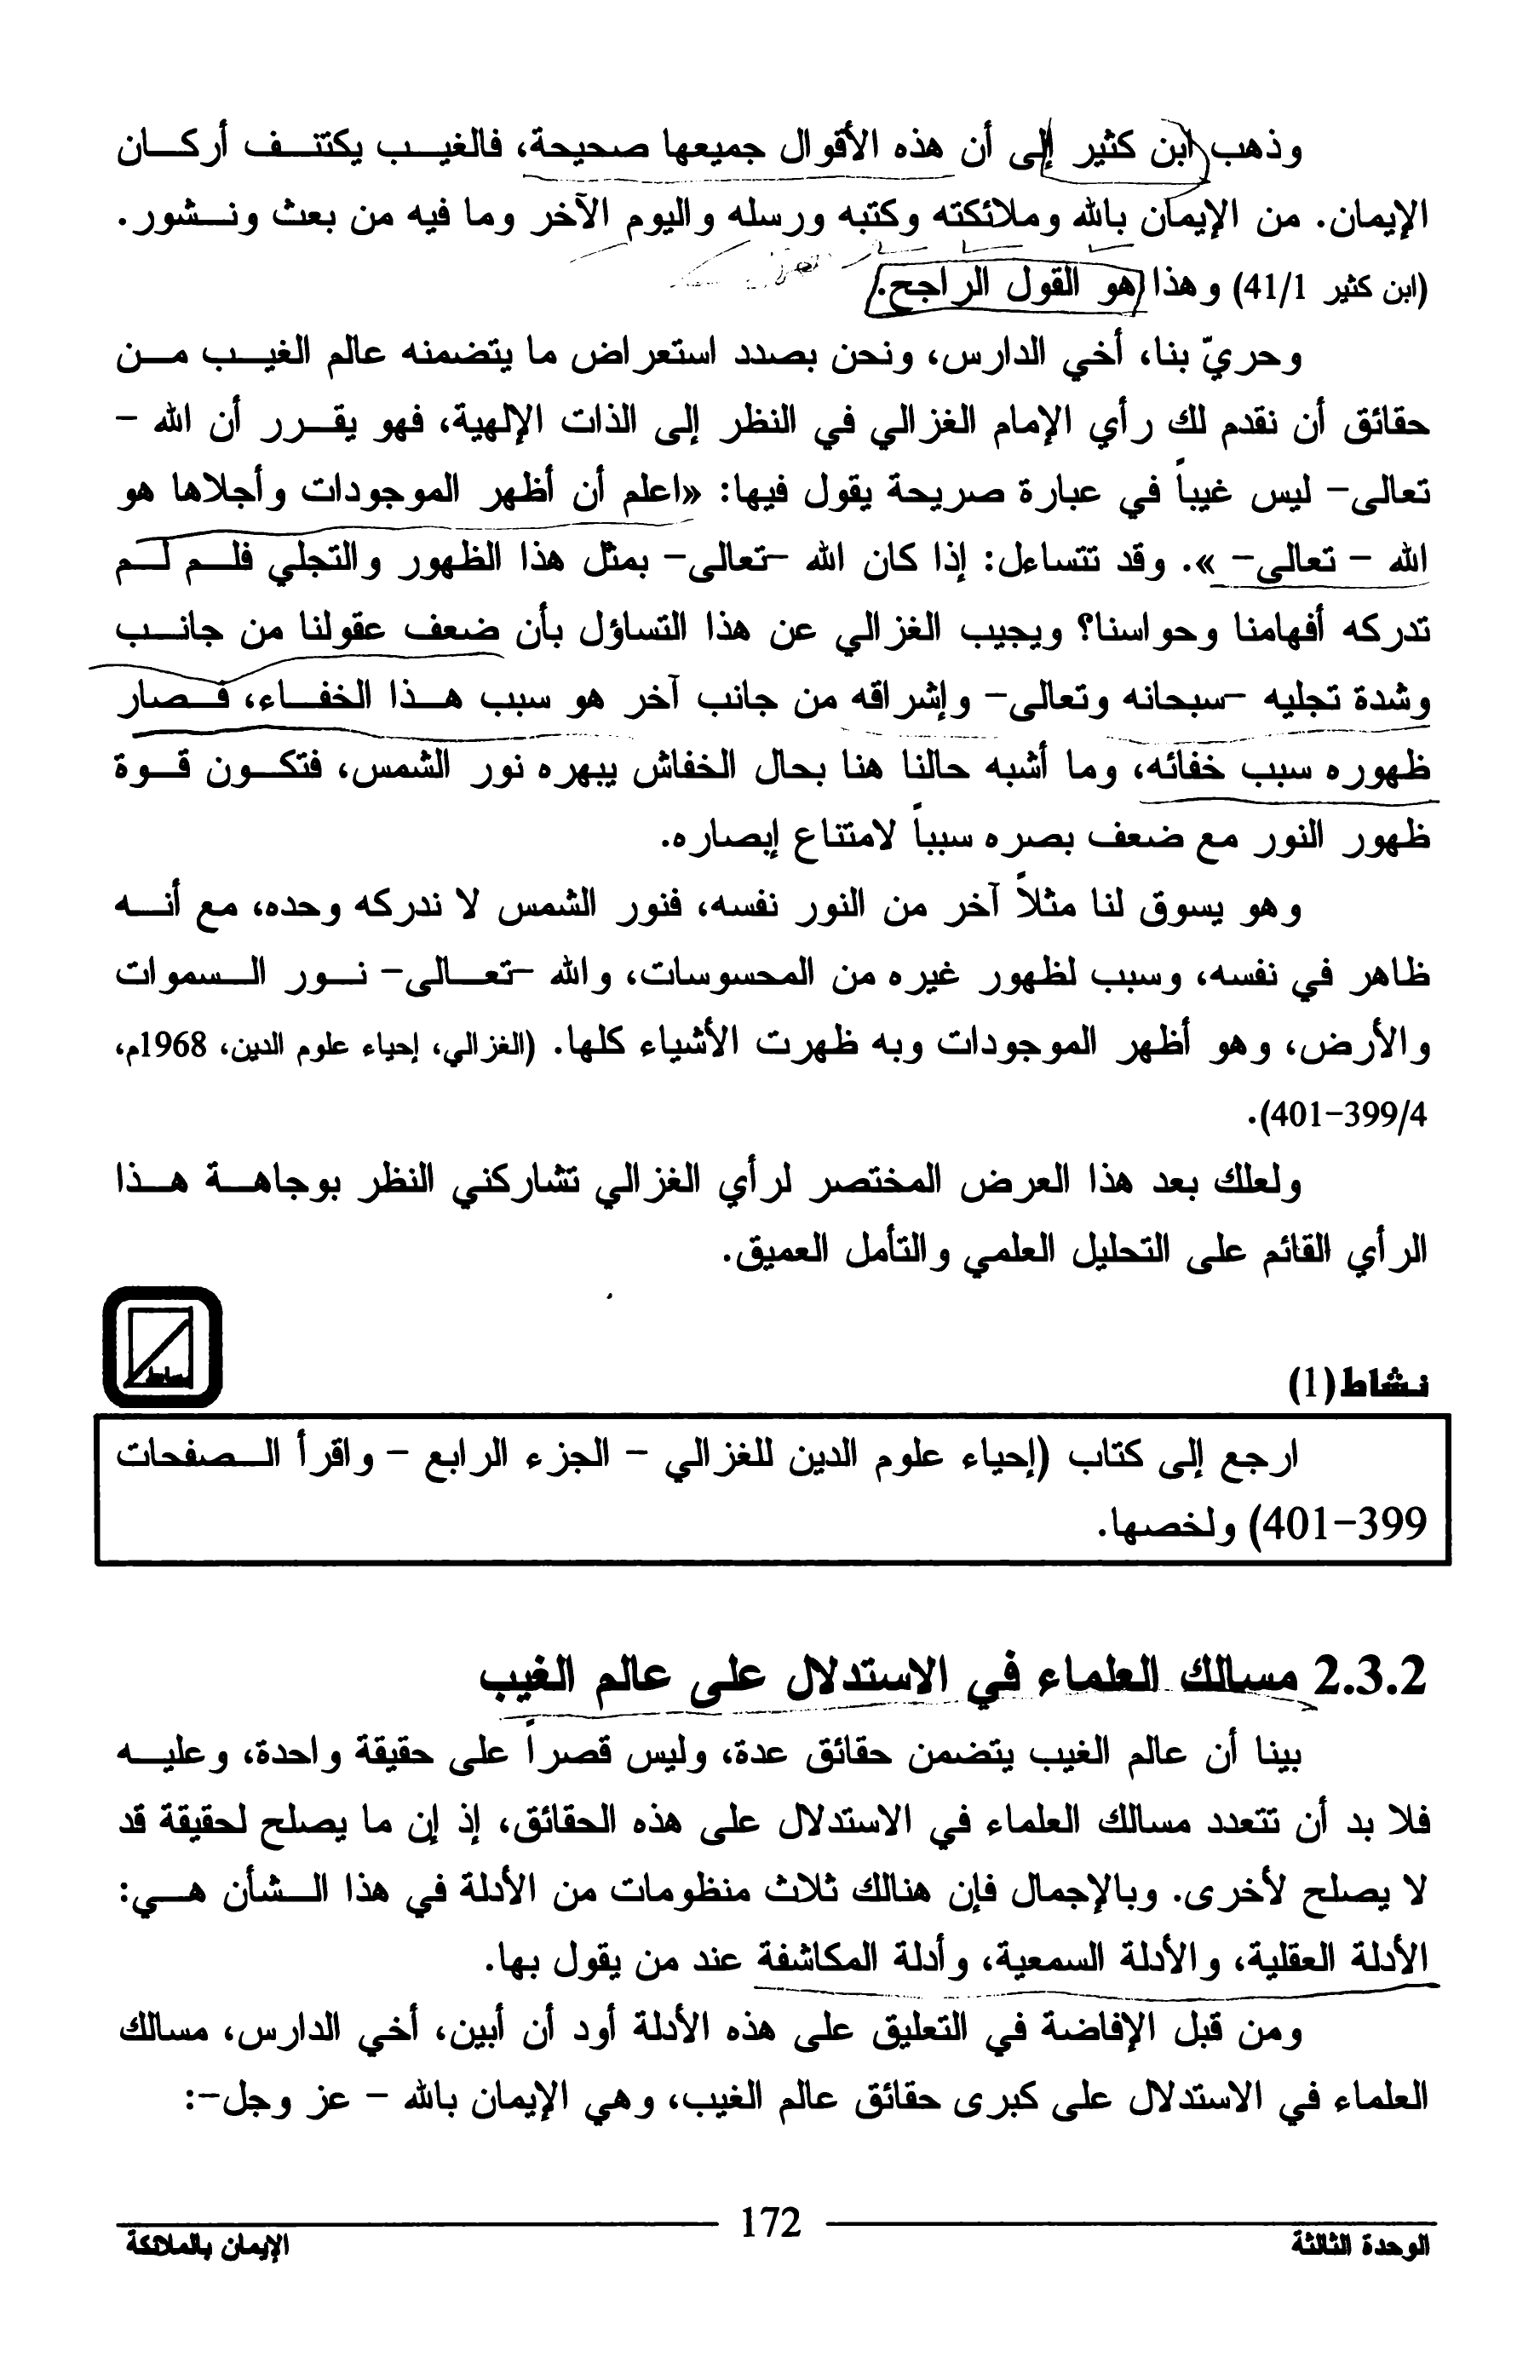 وذهب ابن كثير إلى أن هذه الأقوال جميعها صحيحة، فالغيب يكتنف أركان
الإيمان. من الإيمان بالله وملائكته وكتبه ورسله واليوم الآخر وما فيه من بعث ونشور.
(ابن كثير 41/1) وهذا هو القول الراجح.
وحريّ بنا، أخي الدارس، ونحن بصدد استعراض ما يتضمنه عالم الغيب من
حقائق أن نقدم لك رأي الإمام الغزالي في النظر إلى الذات الإلهية، فهو يقرر أن الله –
تعالى– ليس غيباً في عبارة صريحة يقول فيها: «اعلم أن أظهر الموجودات وأجلاها هو
الله – تعالى– ». وقد تتساءل: إذا كان الله –تعالى– بمثل هذا الظهور والتجلي فلم لم
تدركه أفهامنا وحواسنا؟ ويجيب الغزالي عن هذا التساؤل بأن ضعف عقولنا من جانب
وشدة تجليه –سبحانه وتعالى– وإشراقه من جانب آخر هو سبب هذا الخفاء، فصار
ظهوره سبب خفائه، وما أشبه حالنا هنا بحال الخفاش يبهره نور الشمس، فتكون قوة
ظهور النور مع ضعف بصره سبباً لامتناع إبصاره.
وهو يسوق لنا مثلاً آخر من النور نفسه، فنور الشمس لا ندركه وحده، مع أنه
ظاهر في نفسه، وسبب لظهور غيره من المحسوسات، والله –تعالى– نور السموات
والأرض، وهو أظهر الموجودات وبه ظهرت الأشياء كلها. (الغزالي، إحياء علوم الدين، 1968م،
399/4–401).
ولعلك بعد هذا العرض المختصر لرأي الغزالي تشاركني النظر بوجاهة هذا
الرأي القائم على التحليل العلمي والتأمل العميق.
نشاط
نشاط(1)
ارجع إلى كتاب (إحياء علوم الدين للغزالي – الجزء الرابع – واقرأ الصفحات
399–401) ولخصها.
2.3.2 مسالك العلماء في الاستدلال على عالم الغيب
بينا أن عالم الغيب يتضمن حقائق عدة، وليس قصراً على حقيقة واحدة، وعليه
فلا بد أن تتعدد مسالك العلماء في الاستدلال على هذه الحقائق، إذ إن ما يصلح لحقيقة قد
لا يصلح لأخرى. وبالإجمال فإن هنالك ثلاث منظومات من الأدلة في هذا الشأن هي:
الأدلة العقلية، والأدلة السمعية، وأدلة المكاشفة عند من يقول بها.
ومن قبل الإفاضة في التعليق على هذه الأدلة أود أن أبين، أخي الدارس، مسالك
العلماء في الاستدلال على كبرى حقائق عالم الغيب، وهي الإيمان بالله – عز وجل–:
172
الوحدة الثالثة
الإيمان بالملائكة